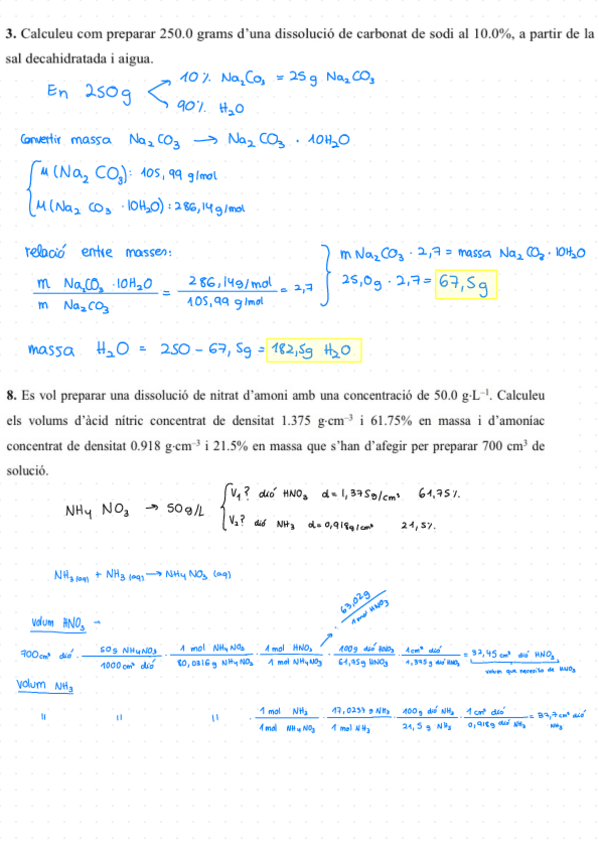 3. Calculeu com preparar 250.0 grams d'una dissolució de carbonat de sodi al 10.0%, a partir de la
sal decahidratada i aigua.
En 250g
10% Na₂CO₃ = 25g Na₂CO₃
90% H₂O
Convertir massa Na₂CO₃ → Na₂CO₃ · 10H₂O
M(Na₂CO₃): 105,99 g/mol
M(Na₂CO₃ · 10H₂O): 286,14g/mol
relació entre masses:
m Na₂CO₃ · 10H₂O / m Na₂CO₃ = 286,14g/mol / 105,99 g/mol = 2,7
m Na₂CO₃ · 2,7 = massa Na₂CO₃ · 10H₂O
25,0g · 2,7 = 67,5g
massa H₂O = 250 - 67,5g = 182,5g H₂O
8. Es vol preparar una dissolució de nitrat d'amoni amb una concentració de 50.0 g·L⁻¹. Calculeu
els volums d'àcid nítric concentrat de densitat 1.375 g·cm⁻³ i 61.75% en massa i d'amoníac
concentrat de densitat 0.918 g·cm⁻³ i 21.5% en massa que s'han d'afegir per preparar 700 cm³ de
solució.
NH₄ NO₃ → 50g/L
V₁? dió HNO₃ d=1,375g/cm³ 61,75%
V₂? dió NH₃ d=0,918g/cm³ 21,5%
NH₃ (aq) + NH₃ (aq) → NH₄NO₃ (aq)
63,02g / 1 mol HNO₃
Volum HNO₃ -
700cm³ dió · 50g NH₄NO₃ / 1000cm³ dió · 1 mol NH₄NO₃ / 80,0316g NH₄NO₃ · 1 mol HNO₃ / 1 mol NH₄NO₃ · 100g dió HNO₃ / 61,75g HNO₃ · 1cm³ dió / 1,375g dió HNO₃ = 32,45cm³ dió HNO₃
volum que necesito de HNO₃
Volum NH₃
" " " · 1 mol NH₃ / 1 mol NH₄NO₃ · 17,0237 g NH₃ / 1 mol NH₃ · 100g dió NH₃ / 21,5 g NH₃ · 1 cm³ dió / 0,918g dió NH₃ = 37,7cm³ dió NH₃